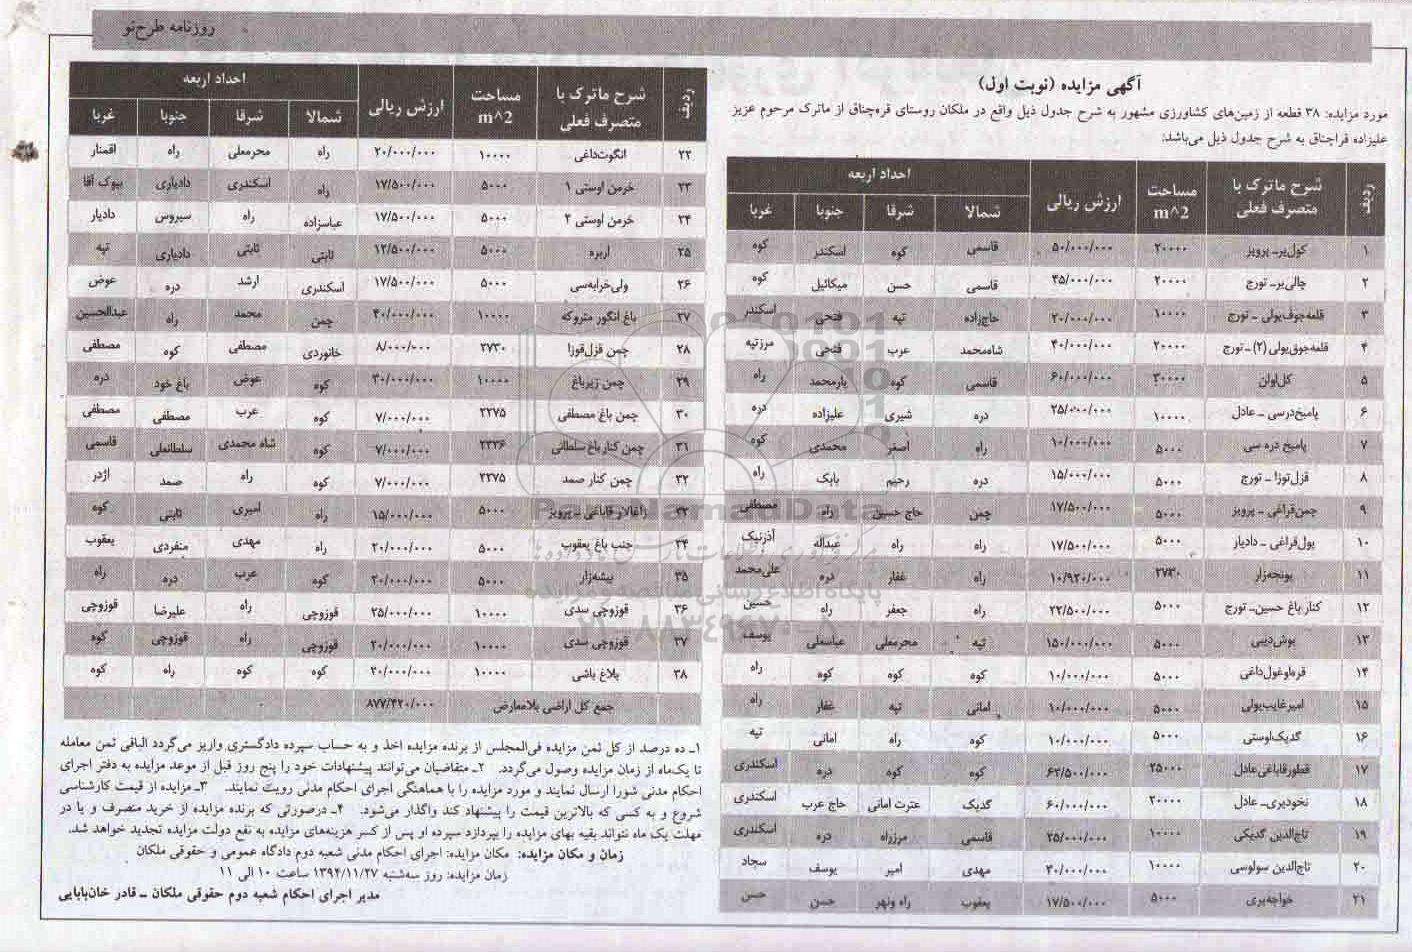 روزنامه طرح‌نو
آگهی مزایده (نوبت اول)
مورد مزایده: ۳۸ قطعه از زمین‌های کشاورزی مشهور به شرح جدول ذیل واقع در ملکان روستای قره‌چناق از ماترک مرحوم عزیز
علیزاده قراچناق به شرح جدول ذیل می‌باشد:
ردیف شرح ماترک با متصرف فعلی مساحت m^2 ارزش ریالی احداد اربعه شمالا شرقا جنوبا غربا
۱ کول‌یر- پرویز ۲۰۰۰۰ ۵۰/۰۰۰/۰۰۰ قاسمی کوه اسکندر کوه
۲ چالی‌یر- تورج ۲۰۰۰۰ ۴۵/۰۰۰/۰۰۰ قاسمی حسن میکائیل کوه
۳ قلمه‌جوق‌یولی - تورج ۱۰۰۰۰ ۲۰/۰۰۰/۰۰۰ حاج‌زاده تپه فتحی اسکندر
۴ قلمه‌جوق‌یولی (۲) - تورج ۲۰۰۰۰ ۴۰/۰۰۰/۰۰۰ شاه‌محمد عرب فتحی مرزتپه
۵ کل‌اوان ۳۰۰۰۰ ۶۰/۰۰۰/۰۰۰ قاسمی کوه یارمحمد راه
۶ پامیخ‌درسی - عادل ۱۰۰۰۰ ۲۵/۰۰۰/۰۰۰ دره شیری علیزاده دره
۷ پامیخ دره سی ۵۰۰۰ ۱۰/۰۰۰/۰۰۰ راه اصغر محمدی کوه
۸ قزل‌توزا - تورج ۵۰۰۰ ۱۵/۰۰۰/۰۰۰ دره رحیم بابک راه
۹ چمن‌قراغی - پرویز ۵۰۰۰ ۱۷/۵۰۰/۰۰۰ چمن حاج حسین راه مصطفی
۱۰ یول‌قراغی - دادیار ۵۰۰۰ ۱۷/۵۰۰/۰۰۰ راه راه عبداله آذرنیک
۱۱ یونجه‌زار ۲۷۳۰ ۱۰/۹۲۰/۰۰۰ راه غفار دره علی‌محمد
۱۲ کنار باغ حسین- تورج ۵۰۰۰ ۲۲/۵۰۰/۰۰۰ راه جعفر راه حسین
۱۳ یوش‌دیبی ۵۰۰۰ ۱۵۰/۰۰۰/۰۰۰ تپه محرمعلی عباسعلی یوسف
۱۴ قره‌اوغول‌داغی ۵۰۰۰ ۱۰/۰۰۰/۰۰۰ کوه کوه کوه راه
۱۵ امیرغایب‌یولی ۵۰۰۰ ۱۰/۰۰۰/۰۰۰ امانی تپه غفار راه
۱۶ گدیک‌اوستی ۵۰۰۰ ۱۰/۰۰۰/۰۰۰ کوه راه امانی تپه
۱۷ قطورقاباغی‌عادل ۲۵۰۰۰ ۶۲/۵۰۰/۰۰۰ کوه کوه دره اسکندری
۱۸ نخودیری- عادل ۲۰۰۰۰ ۶۰/۰۰۰/۰۰۰ گدیک عترت امانی حاج عرب اسکندری
۱۹ تاج‌الدین گدیکی ۱۰۰۰۰ ۳۵/۰۰۰/۰۰۰ قاسمی مرزراه دره اسکندری
۲۰ تاج‌الدین سولوسی ۱۰۰۰۰ ۳۰/۰۰۰/۰۰۰ مهدی امیر یوسف سجاد
۲۱ خواجه‌یری ۵۰۰۰ ۱۷/۵۰۰/۰۰۰ یعقوب راه ونهر حسن حسن
ردیف شرح ماترک با متصرف فعلی مساحت m^2 ارزش ریالی احداد اربعه شمالا شرقا جنوبا غربا
۲۲ انگوت‌داغی ۱۰۰۰۰ ۲۰/۰۰۰/۰۰۰ راه محرمعلی راه اقمنار
۲۳ خرمن اوستی ۱ ۵۰۰۰ ۱۷/۵۰۰/۰۰۰ راه اسکندری دادیاری بیوک آقا
۲۴ خرمن اوستی ۲ ۵۰۰۰ ۱۷/۵۰۰/۰۰۰ عباسزاده راه سیروس دادیار
۲۵ اربره ۵۰۰۰ ۱۲/۵۰۰/۰۰۰ ثابتی ثابتی دادیاری تپه
۲۶ ولی‌خرابه‌سی ۵۰۰۰ ۱۷/۵۰۰/۰۰۰ اسکندری ارشد دره عوض
۲۷ باغ انگور متروکه ۱۰۰۰۰ ۴۰/۰۰۰/۰۰۰ چمن محمد راه عبدالحسین
۲۸ چمن قزل‌قوزا ۲۷۳۰ ۸/۰۰۰/۰۰۰ خانوردی مصطفی کوه مصطفی
۲۹ چمن زیرباغ ۱۰۰۰۰ ۳۰/۰۰۰/۰۰۰ کوه عوض باغ خود دره
۳۰ چمن باغ مصطفی ۲۲۷۵ ۷/۰۰۰/۰۰۰ کوه عرب مصطفی مصطفی
۳۱ چمن کنار باغ سلطانی ۲۳۳۶ ۷/۰۰۰/۰۰۰ کوه شاه محمدی سلطانعلی قاسمی
۳۲ چمن کنار صمد ۲۲۷۵ ۷/۰۰۰/۰۰۰ کوه راه صمد اژدر
۳۳ زاغالار قاباغی - پرویز ۵۰۰۰ ۱۵/۰۰۰/۰۰۰ راه امیری ثابتی کوه
۳۴ جنب باغ یعقوب ۵۰۰۰ ۲۰/۰۰۰/۰۰۰ راه مهدی منفردی یعقوب
۳۵ بیشه‌زار ۵۰۰۰ ۲۰/۰۰۰/۰۰۰ کوه عرب دره راه
۳۶ قوزوچی سدی ۱۰۰۰۰ ۲۵/۰۰۰/۰۰۰ قوزوچی راه علیرضا قوزوچی
۳۷ قوزوچی سدی ۱۰۰۰۰ ۲۰/۰۰۰/۰۰۰ قوزوچی راه قوزوچی کوه
۳۸ بلاغ باشی ۱۰۰۰۰ ۲۰/۰۰۰/۰۰۰ کوه کوه راه کوه
جمع کل اراضی بلامعارض ۸۷۷/۴۲۰/۰۰۰
۱- ده درصد از کل ثمن مزایده فی‌المجلس از برنده مزایده اخذ و به حساب سپرده دادگستری واریز می‌گردد الباقی ثمن معامله
تا یک‌ماه از زمان مزایده وصول می‌گردد. ۲- متقاضیان می‌توانند پیشنهادات خود را پنج روز قبل از موعد مزایده به دفتر اجرای
احکام مدنی شورا ارسال نمایند و مورد مزایده را با هماهنگی اجرای احکام مدنی رویت نمایند. ۳- مزایده از قیمت کارشناسی
شروع و به کسی که بالاترین قیمت را پیشنهاد کند واگذار می‌شود. ۴- درصورتی که برنده مزایده از خرید منصرف و یا در
مهلت یک ماه نتواند بقیه بهای مزایده را بپردازد سپرده او پس از کسر هزینه‌های مزایده به نفع دولت مزایده تجدید خواهد شد.
زمان و مکان مزایده: مکان مزایده: اجرای احکام مدنی شعبه دوم دادگاه عمومی و حقوقی ملکان
زمان مزایده: روز سه‌شنبه ۱۳۹۴/۱۱/۲۷ ساعت ۱۰ الی ۱۱
مدیر اجرای احکام شعبه دوم حقوقی ملکان - قادر خان‌بابایی